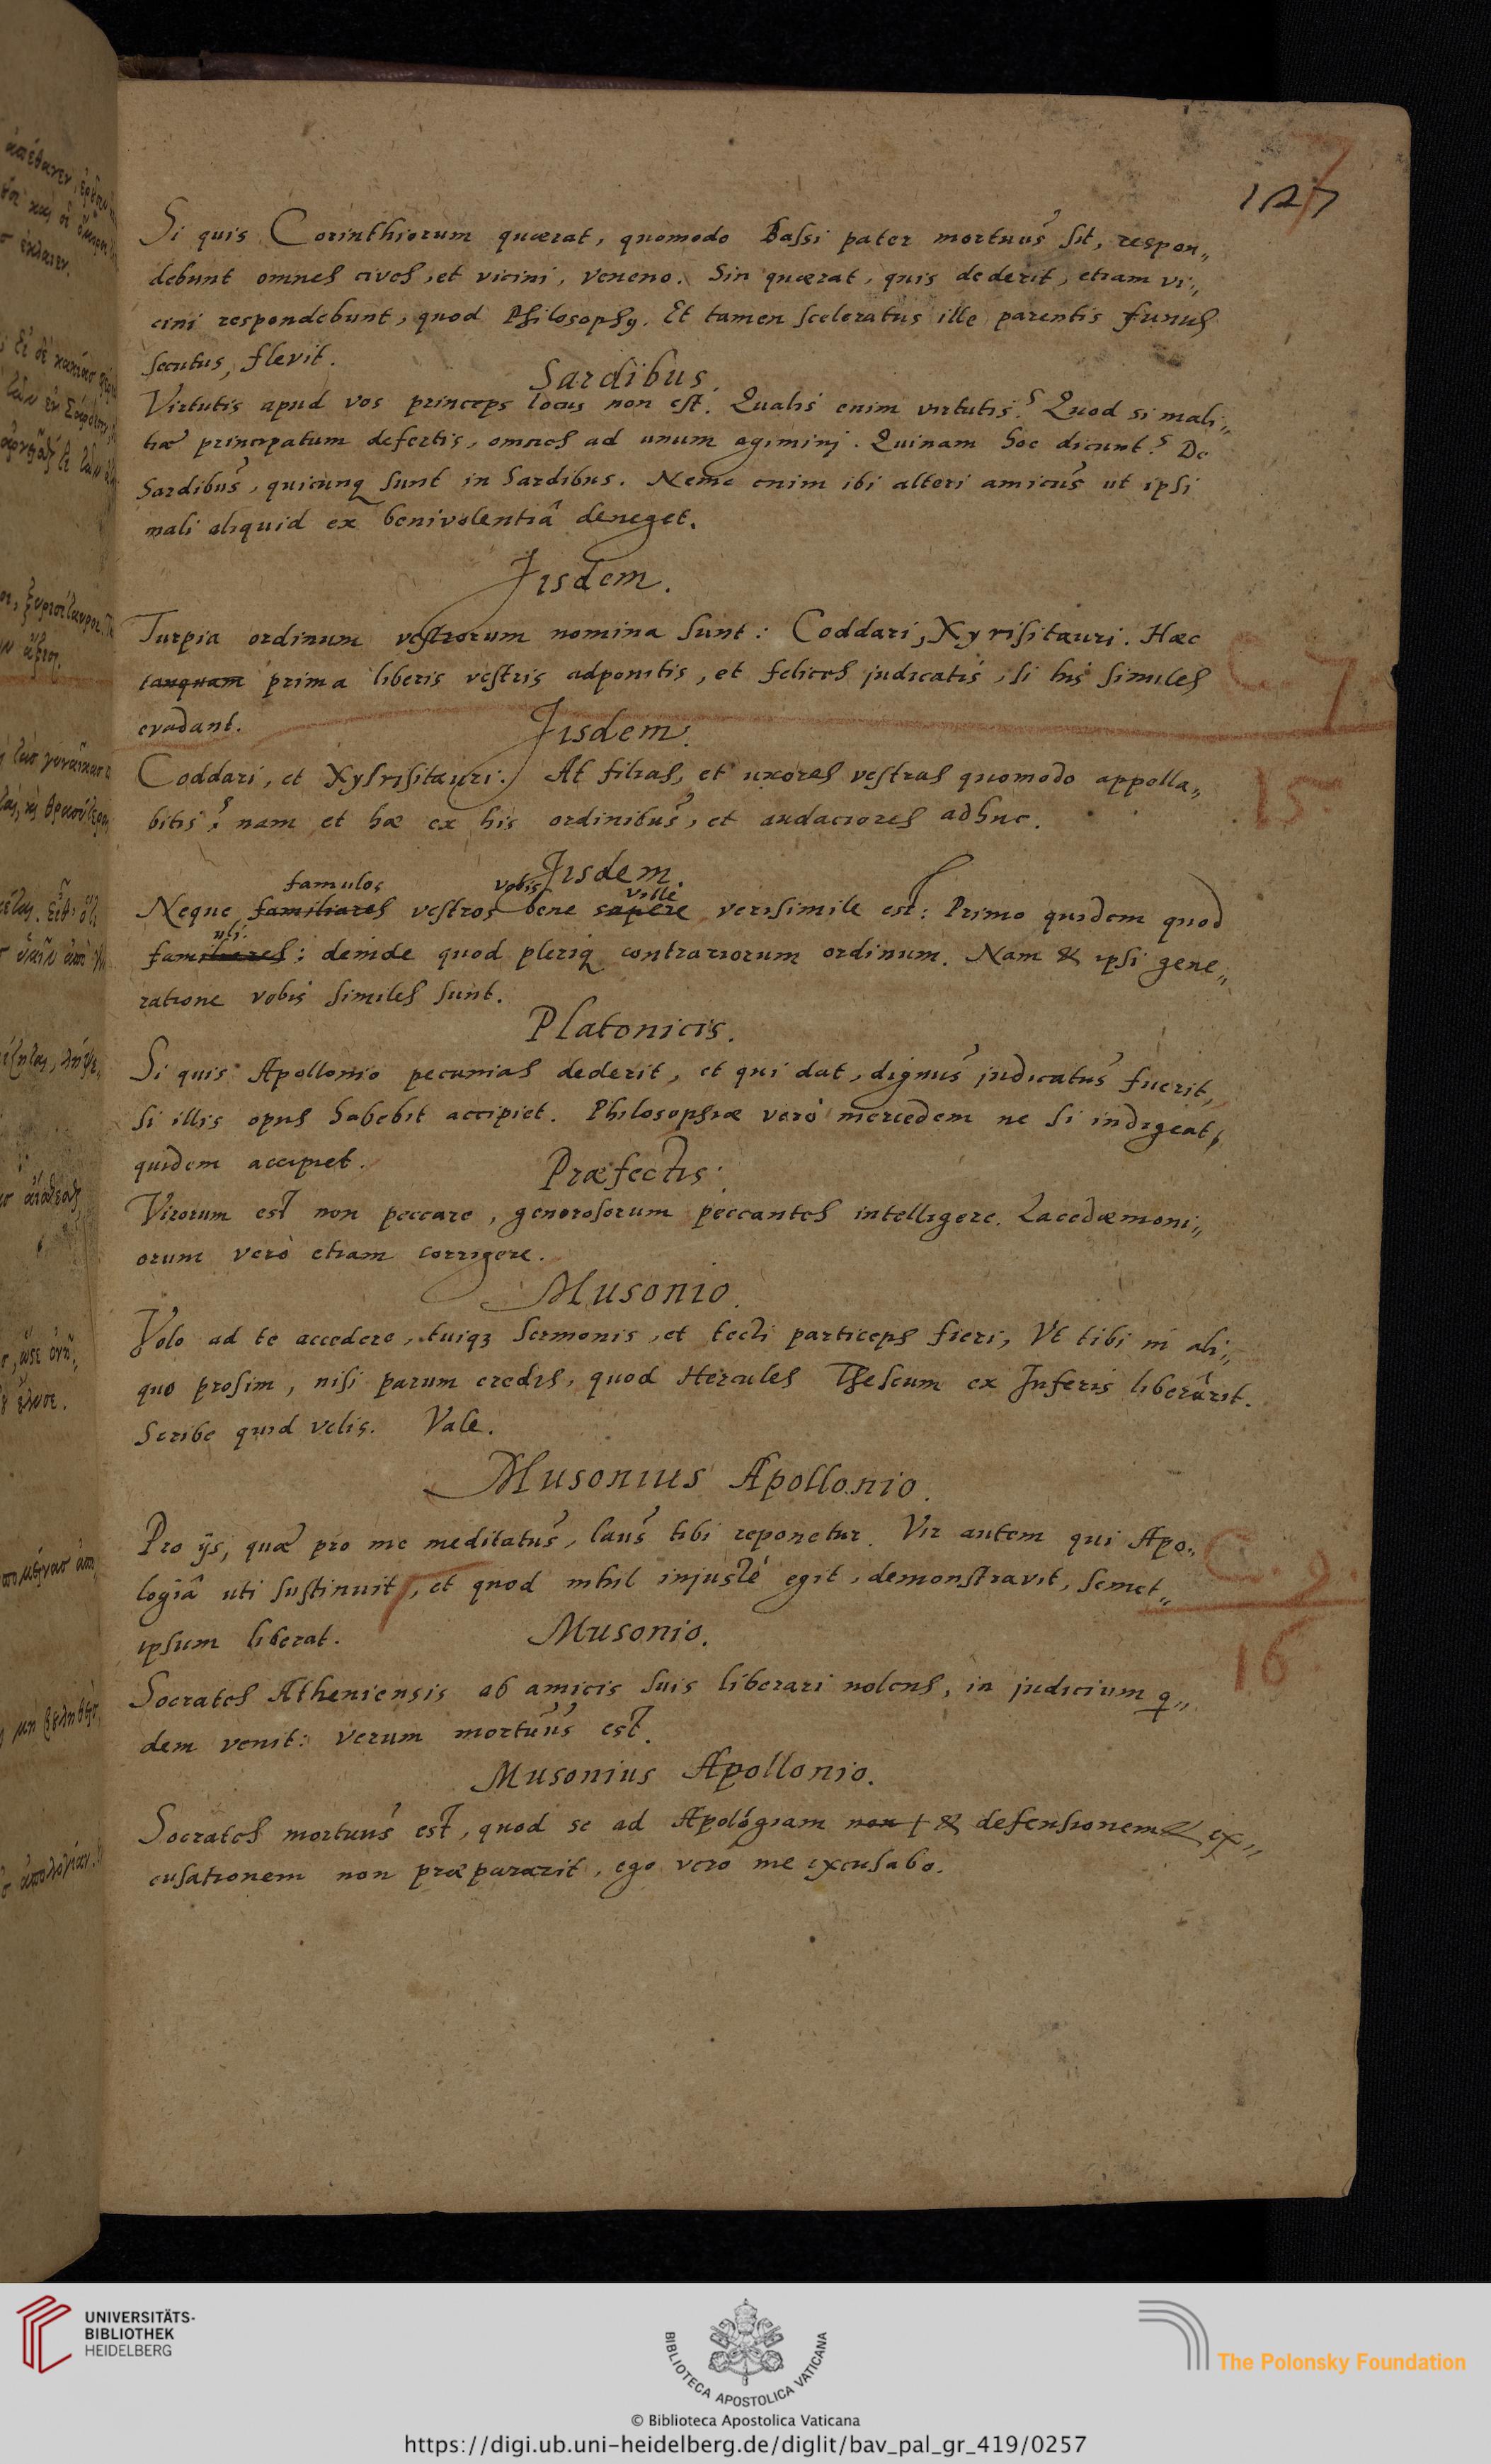 127
Si quis Corinthiorum quærat, quomodo Bassi pater mortuus sit, respon„
debunt omnes cives, et vicini, veneno. Sin quærat, quis dederit, etiam vi„
cini respondebunt, quod Philosophy. Et tamen sceleratus ille parentis funus
secutus, flevit.
Sardibus.
Virtutis apud vos princeps locus non est. Qualis enim virtutis? Quod si mali„
tiæ principatum defertis, omnes ad unum agimini. Quinam hoc dicunt? De
Sardibus, quicunq sunt in Sardibus. Nemo enim ibi alteri amicus ut ipsi
mali aliquid ex benivolentiâ deneget.
Jisdem.
Turpia ordinum vestrorum nomina sunt: Coddari, Xyrisitauri. Hæc
tanquam prima liberis vestris adponitis, et felices judicatis, si his similes
evadant.
C. 7
Jisdem.
15
Coddari, et Xysrisitauri. At filias, et uxores vestras quomodo appella„
bitis? nam et hæ ex his ordinibus, et audaciores adhuc.
Jisdem.
famulos vobis velle
Neque familiares vestros bene sapere verisimile est: Primo quidem quod
familiares: deinde quod pleriq contrariorum ordinum. Nam & ipsi gene„
ratione vobis similes sunt.
Platonicis.
Si quis Apollonio pecunias dederit, et qui dat, dignus judicatus fuerit,
si illis opus habebit accipiet. Philosophiæ verò mercedem ne si indigeat,
quidem accipiet.
Præfectis.
Virorum est non peccare, generosorum peccantes intelligere. Lacedæmoni„
orum verò etiam corrigere.
Musonio.
Volo ad te accedere, tuiqz sermonis, et tecti particeps fieri, Ut tibi in ali„
quo prosim, nisi parum credis, quod Hercules Theseum ex Inferis liberârit.
Scribe quid velis. Vale.
Musonius Apollonio.
Pro ijs, quæ pro me meditatus, laus tibi reponetur. Vir autem qui Apo„
logiâ uti sustinuit, et quod nihil injustè egit, demonstravit, semet„
ipsum liberat.
C. 9.
Musonio.
16
Socrates Atheniensis ab amicis suis liberari nolens, in judicium q„
dem venit: verum mortuus est.
Musonius Apollonio.
Socrates mortuus est, quod se ad Apologiam non & defensionem & ex„
cusationem non præpararit, ego vero me excusabo.
UNIVERSITÄTS-
BIBLIOTHEK
HEIDELBERG
BIBLIOTECA APOSTOLICA VATICANA
The Polonsky Foundation
© Biblioteca Apostolica Vaticana
https://digi.ub.uni-heidelberg.de/diglit/bav_pal_gr_419/0257